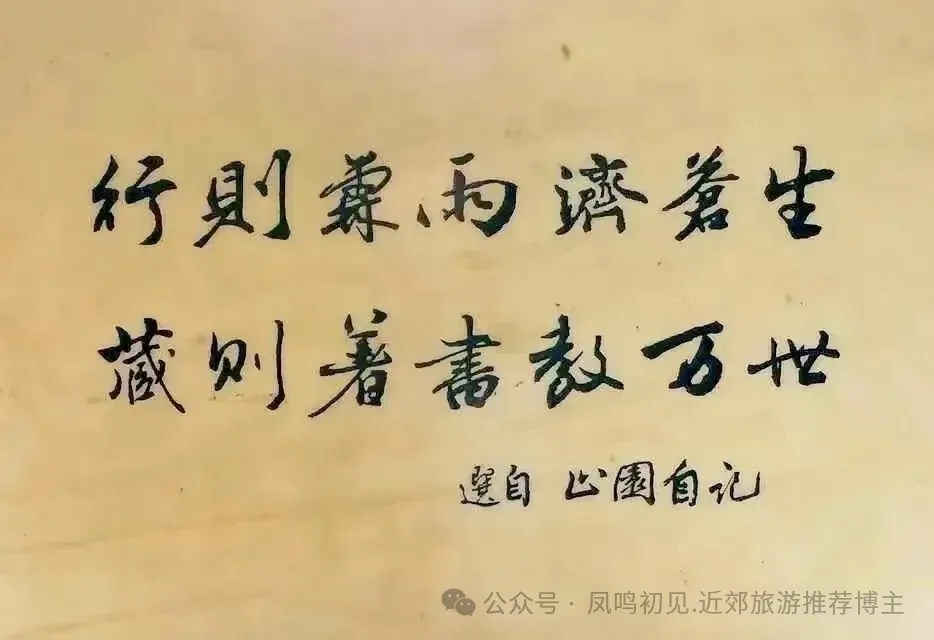 行則霖雨濟蒼生
藏则著書教万世
選自 止園自记
公众号 · 凤鸣初见.近郊旅游推荐博主